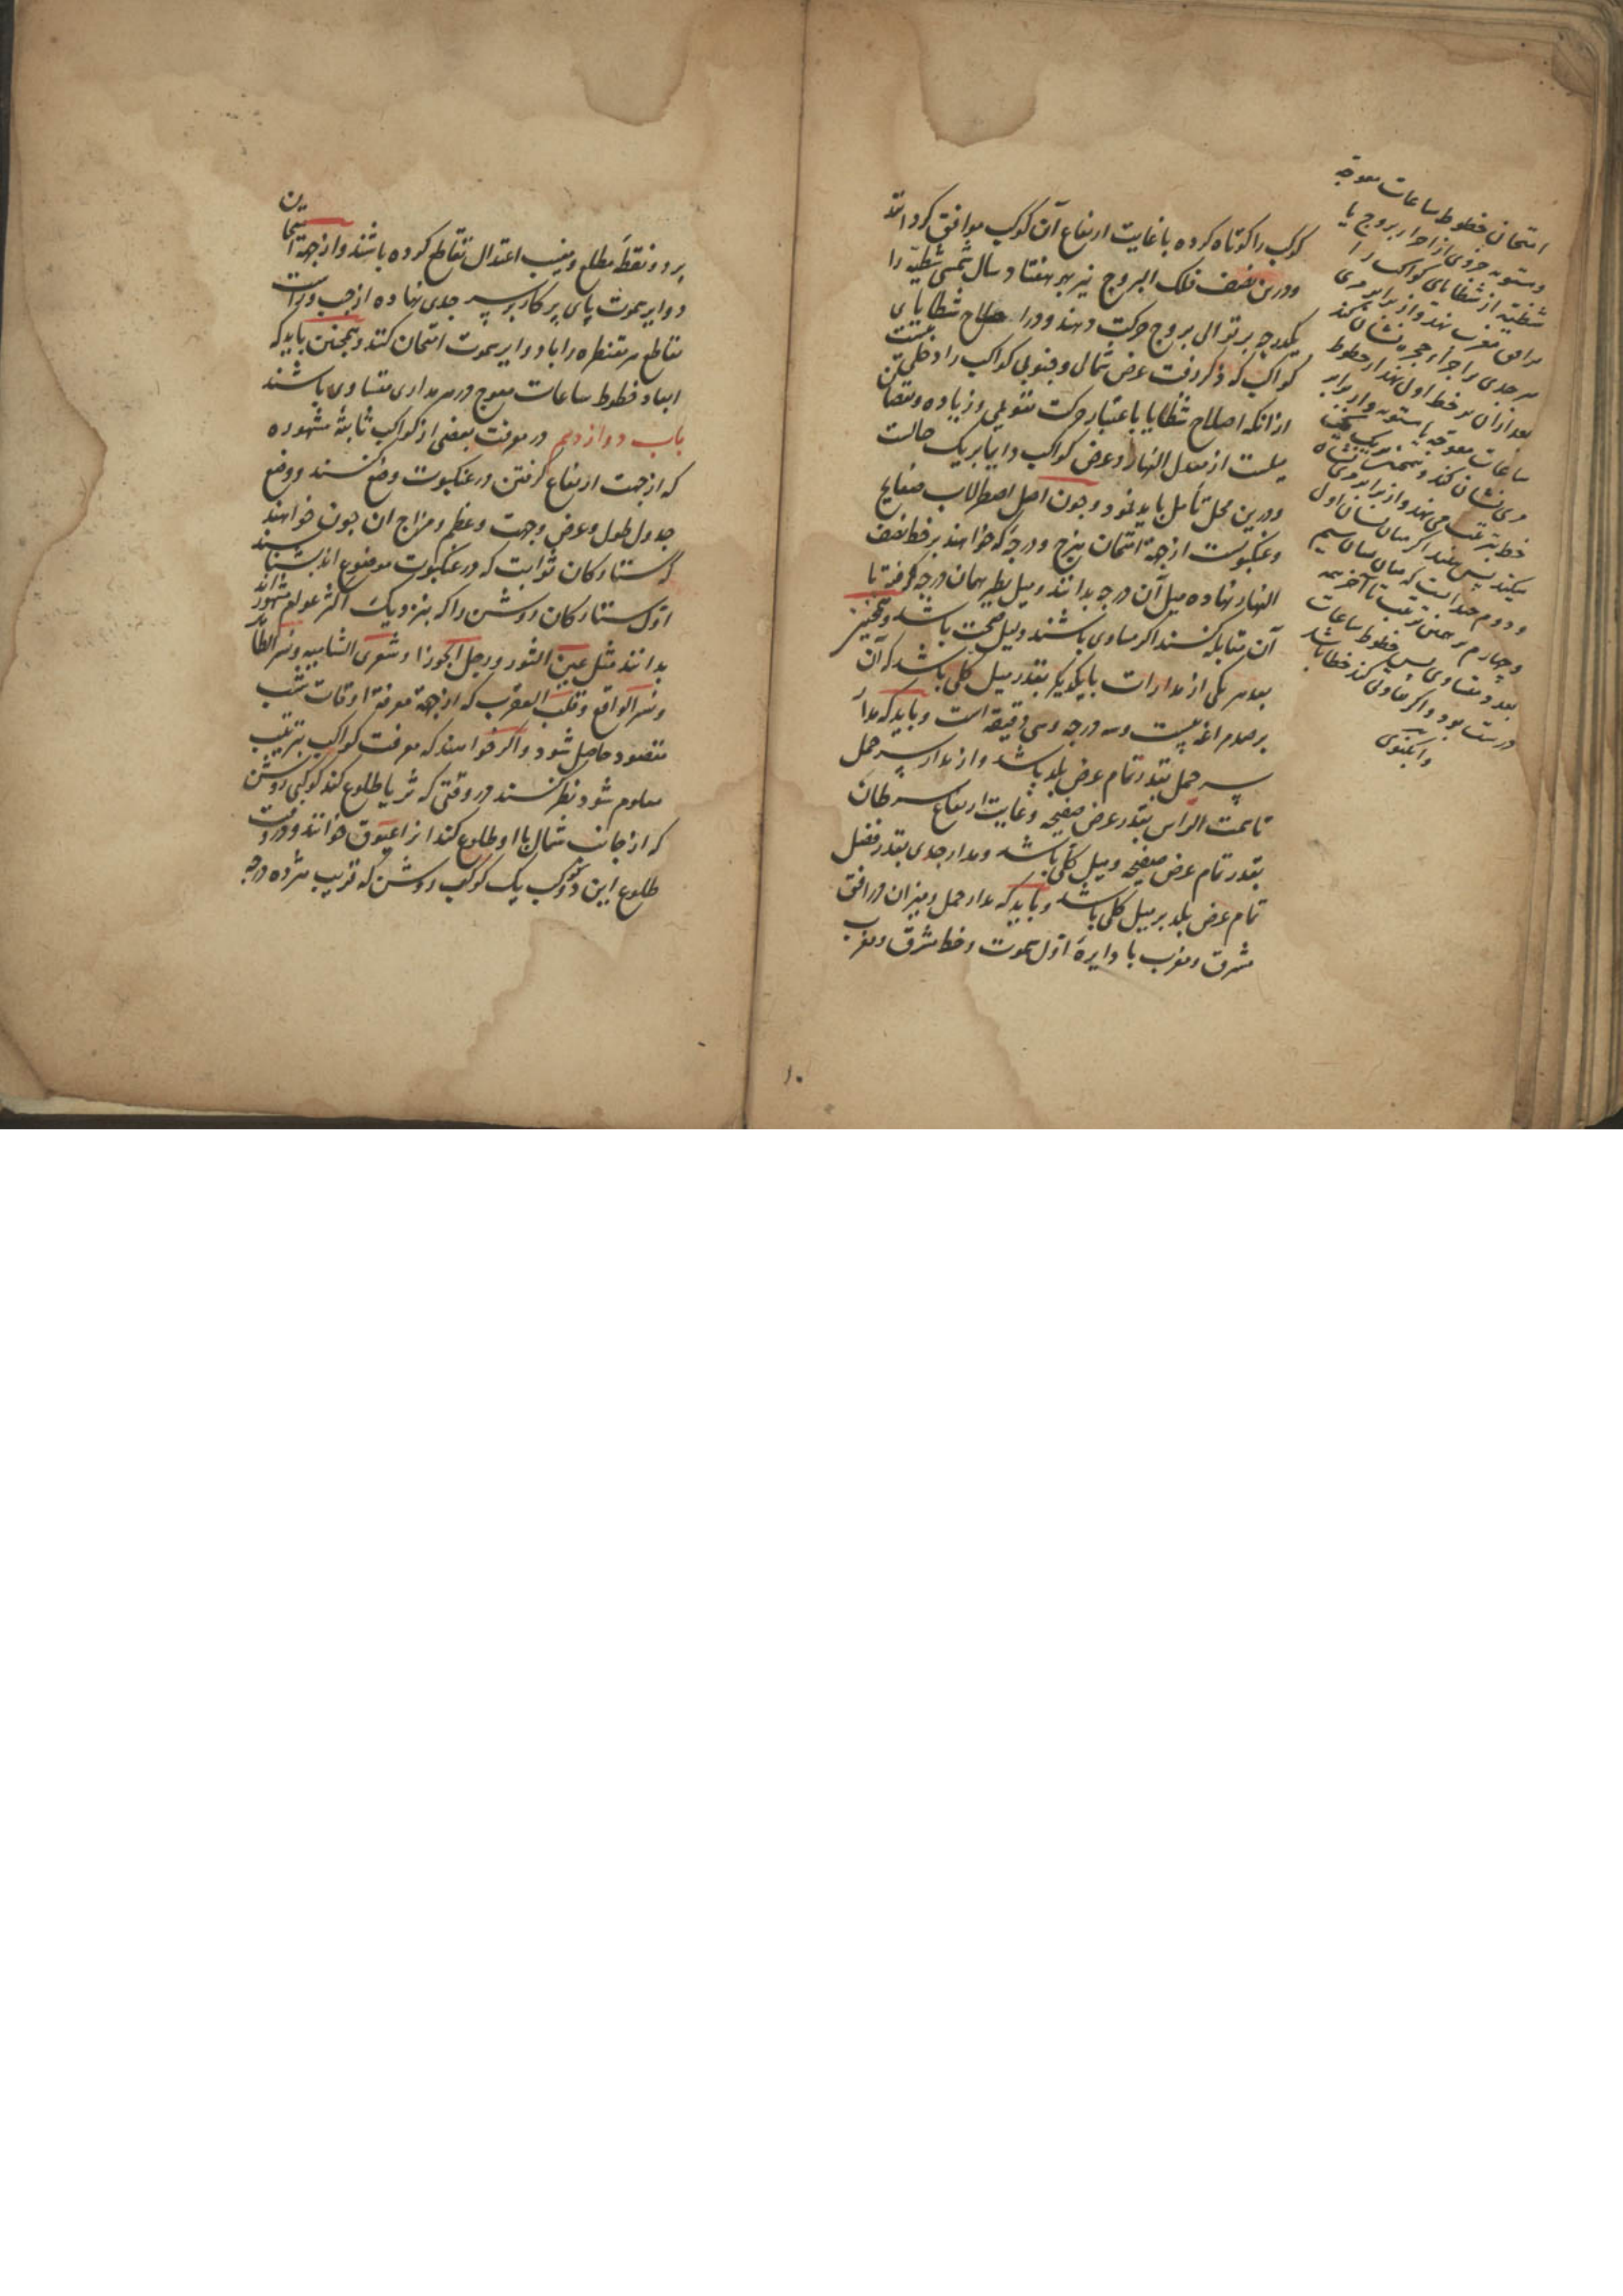 کوکب را کوتاه کرده با غایت ارتفاع آن کوکب موافق کردانند
و درین نصف فلک البروج نیز بهر هفتاد سال شمسی شظیه را
یکدرجه بر توالی بروج حرکت دهند و در اصلاح شظایای
کواکب که ذکر رفت عرض شمال و جنوبی کواکب را دخلی نیست
از آنکه اصلاح شظایا باعتبار حرکت تقویمی و زیاده و نقصان
میلست از معدل النهار و عرض کواکب دایما بر یک حالست
و درین محل تأمل باید نمود و چون اصل اصطرلاب صفایح
و عنکبوتست از جهة امتحان هر درجه که خواهند بر خط نصف
النهار نهاده میل آن درجه بدانند و میل نظیر همان درجه گرفته با
آن مقابله کنند اگر مساوی باشند دلیل صحت باشد و همچنین
بعد هر یکی از مدارات با یکدیگر بقدر میل کلی باشد که آن
بیست و سه درجه و سی دقیقه است و باید که مدار
سر حمل بقدر تمام عرض بلد باشد و از مدار سر حمل
تا سمت الراس بقدر عرض صفیحه و غایت ارتفاع سرطان
بقدر تمام عرض صفیحه و میل کلی باشد و مدار جدی بقدر فضل
تمام عرض بلد بر میل کلی باشد و باید که مدار حمل و میزان در افق
مشرق و مغرب با دایرهٔ اول سموت و خط مشرق و مغرب
امتحان خطوط ساعات معوجه
و مستویه جزوی از اجزاء بروج یا
شظیه از شظایای کواکب را
بر افق مغرب نهد و از برابر مری
سر جدی بر اجزاء حجره نشان کند
بعد از آن بر خط اول نهد از خطوط
ساعات معوجه یا مستویه و از برابر
مری نشان کند و همچنین بر یک یک
خط بترتیب می نهد و از برابر مری نشان
میکند پس اگر میان نشان اول
و دوم چندانست که میان نشان سیم
و چهارم بر همین ترتیب تا آخر همه
بعد و متساوی پس خطوط ساعات
درست بود و اگر تفاوتی کند خطا باشد
۱۰
بر دو نقطهٔ مطلع و مغیب اعتدال تقاطع کرده باشند و از جهة امتحان
دوایر سموت پای پرکار بر سر جدی نهاده از چپ و راست
تقاطع هر مقنطره را با دوایر سموت امتحان کنند و همچنین باید که
ابعاد خطوط ساعات معوج در هر مداری متساوی باشند
باب دوازدهم در معرفت بعضی از کواکب ثابتهٔ مشهوره
که از جهت ارتفاع گرفتن در عنکبوت وضع کنند و وضع
جدول طول و عرض و جهت و عظم و مزاج ان چون خواهند
که ستارکان ثوابت که در عنکبوت موضوع اند بشناسند
اول ستارکان روشن را که بنزدیک اکثر عوام مشهورند
بدانند مثل عین الثور و رجل الجوزا و شعری الشامیه و نسر الطایر
و نسر الواقع و قلب العقرب که از جهة معرفة اوقات شب
مقصود حاصل شود و اگر خواهند که معرفت کواکب بترتیب
معلوم شود نظر کنند در وقتی که ثریا طلوع کند کوکبی روشن
که از جانب شمال با او طلوع کند انرا عیوق خوانند و در وقت
طلوع این دو کوکب یک کوکب روشن که قریب هژده درجه